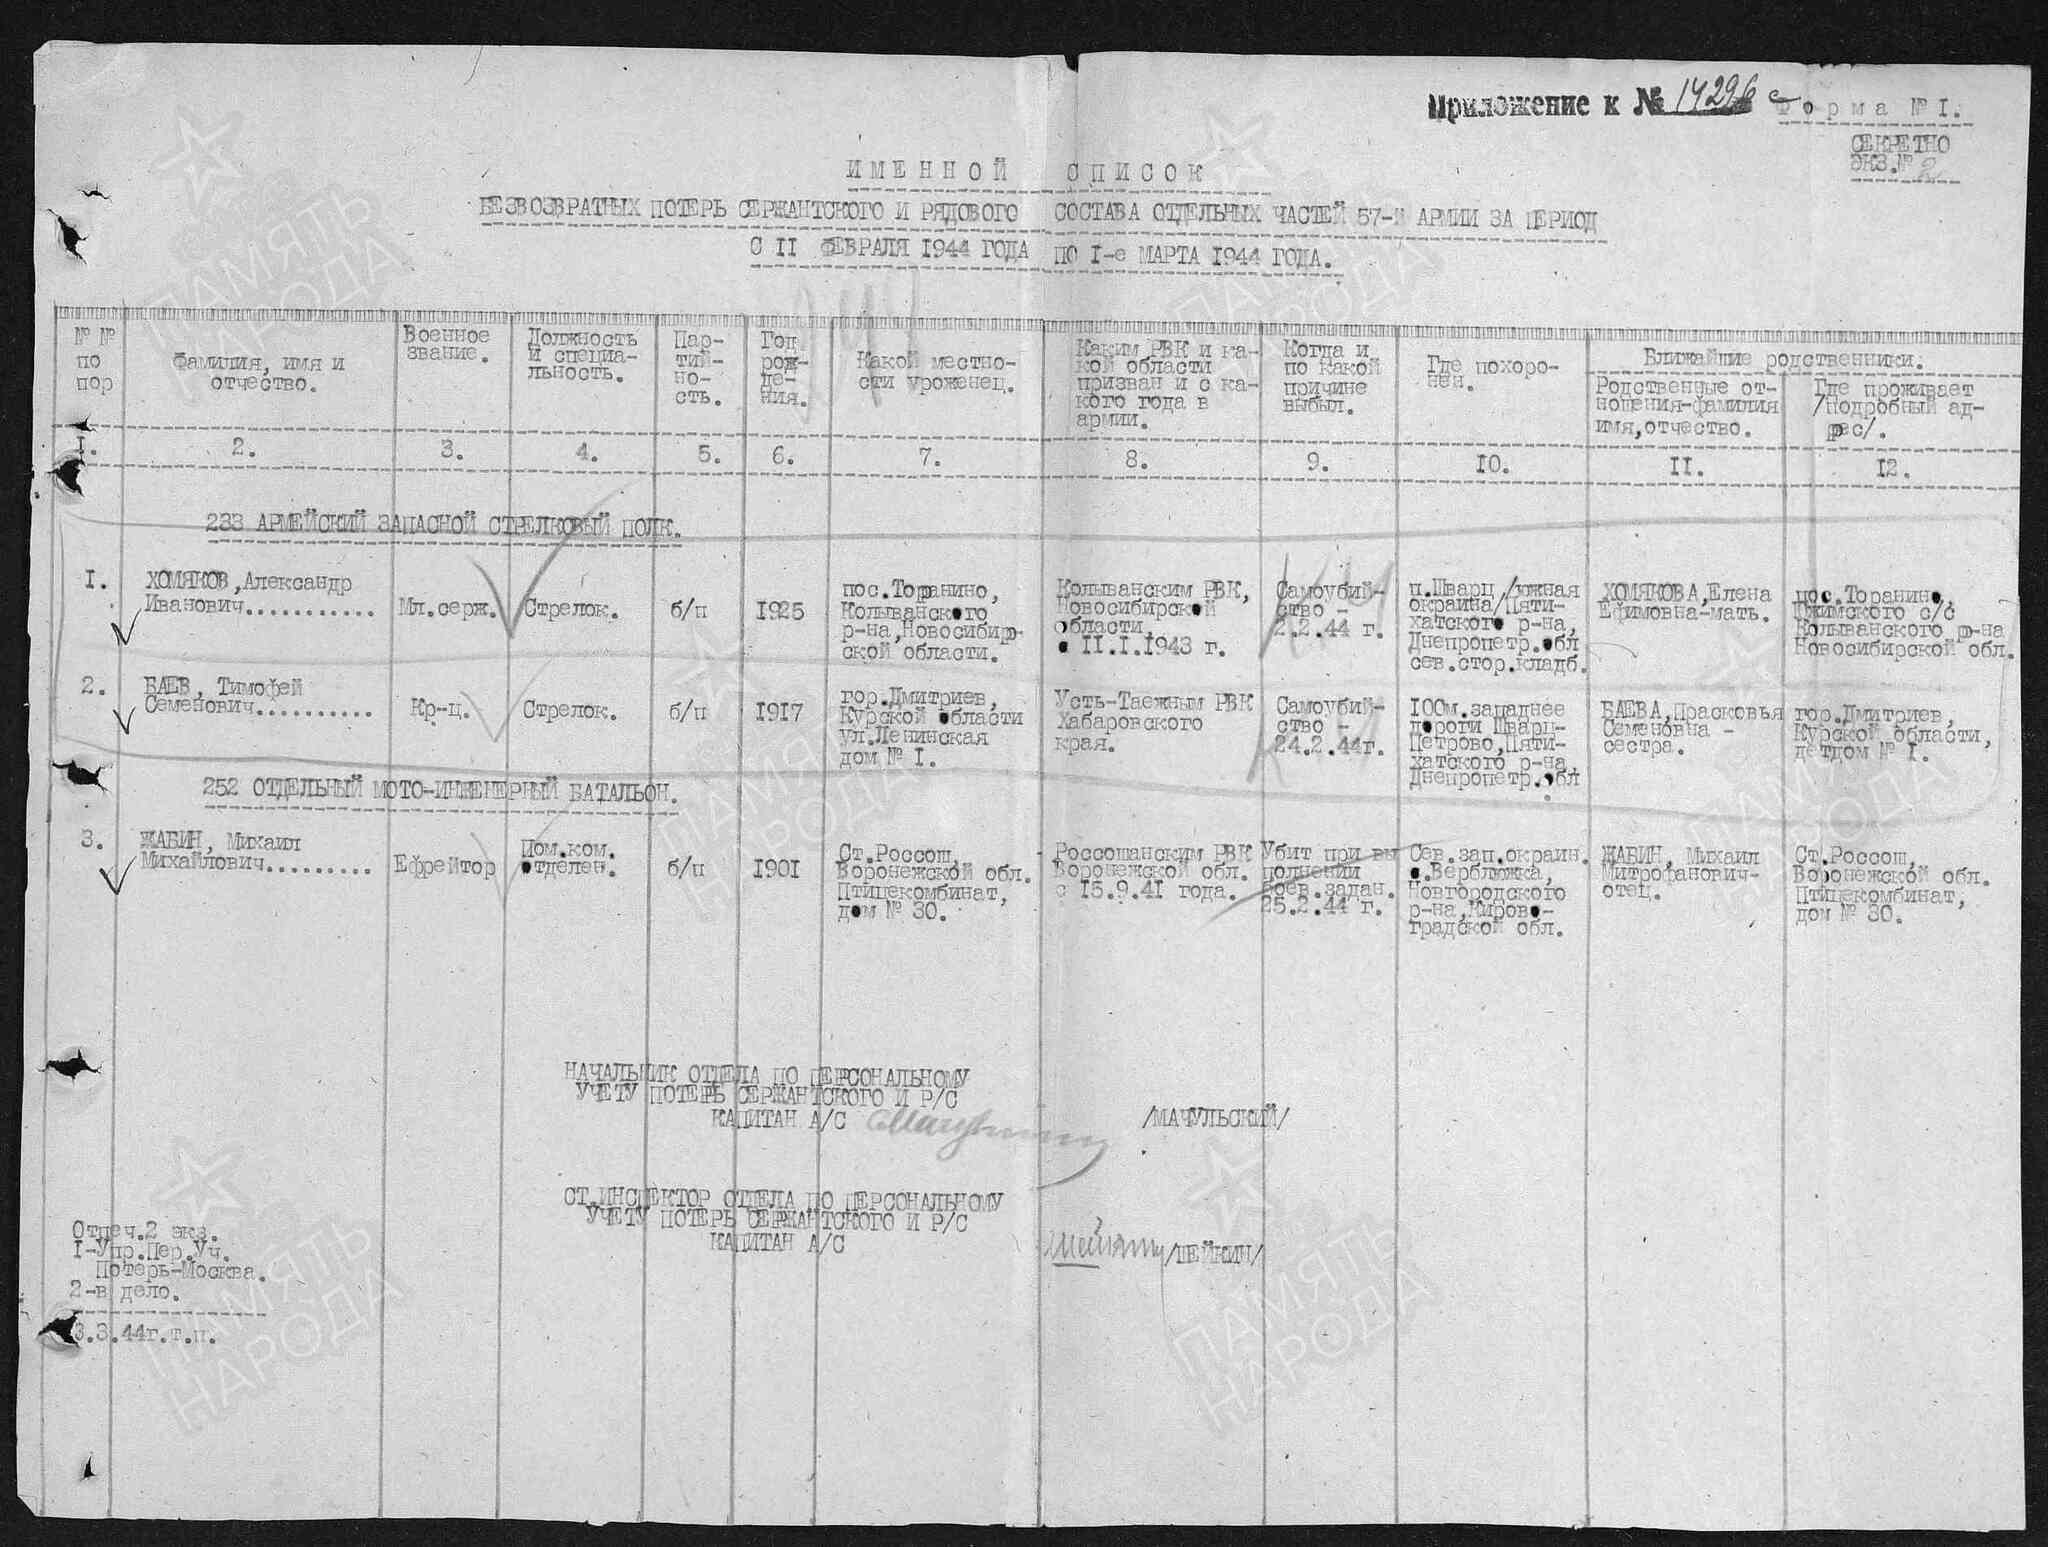 Приложение к № 14296 с Форма № I.
СЕКРЕТНО
ЭКЗ.№ 2
ИМЕННОЙ СПИСОК
БЕЗВОЗВРАТНЫХ ПОТЕРЬ СЕРЖАНТСКОГО И РЯДОВОГО СОСТАВА ОТДЕЛЬНЫХ ЧАСТЕЙ 57-Й АРМИИ ЗА ПЕРИОД
С II ФЕВРАЛЯ 1944 ГОДА ПО I-е МАРТА 1944 ГОДА.
№ №
по
пор
Фамилия, имя и
отчество.
Военное
звание.
Должность
и специа-
льность.
Пар-
тий-
но-
сть.
Год
рож-
де-
ния.
Какой местно-
сти уроженец.
Каким РВК и ка-
кой области
призван и с ка-
кого года в
армии.
Когда и
по какой
причине
выбыл.
Где похоро-
нен.
Ближайшие родственники.
Родственные от-
ношения-фамилия
имя,отчество.
Где проживает
/Подробный ад-
рес/.
I. 2. 3. 4. 5. 6. 7. 8. 9. 10. II. 12.
233 АРМЕЙСКИЙ ЗАПАСНОЙ СТРЕЛКОВЫЙ ПОЛК.
I.
ХОМЯКОВ,Александр
Иванович............
Мл.серж.
Стрелок.
б/п
1925
пос.Торанино,
Колыванского
р-на,Новосибир-
ской области.
Колыванским РВК,
Новосибирской
области,
с II.I.1943 г.
Самоубий-
ство -
2.2.44 г.
п.Шварц /южная
окраина/Пяти-
хатского р-на,
Днепропетр.обл
сев.стор.кладб.
ХОМЯКОВА,Елена
Ефимовна-мать.
пос.Торанино,
с/с
Колыванского р-на
Новосибирской обл.
2.
БАЕВ, Тимофей
Семенович..........
Кр-ц.
Стрелок.
б/п
1917
гор.Дмитриев,
Курской области
ул.Ленинская
дом № I.
Усть-Таежным РВК
Хабаровского
края.
Самоубий-
ство -
24.2.44г.
100м.западнее
дороги Шварц-
Петрово,Пяти-
хатского р-на,
Днепропетр.обл
.
БАЕВА,Прасковья
Семеновна -
сестра.
гор.Дмитриев,
Курской области,
детдом № I.
252 ОТДЕЛЬНЫЙ МОТО-ИНЖЕНЕРНЫЙ БАТАЛЬОН.
3.
ЖАБИН, Михаил
Михайлович.........
Ефрейтор
Пом.ком.
отделен.
б/п
1901
Ст.Россош,
Воронежской обл.
Птицекомбинат,
дом № 30.
Россошанским РВК
Воронежской обл.
с 15.9.41 года.
Убит при вы
полнении
боев.задан.
25.2.44 г.
Сев.зап.окраин.
с.Верблюжка,
Новгородского
р-на,Кирово-
градской обл.
ЖАБИН, Михаил
Митрофанович-
отец.
Ст.Россош,
Воронежской обл.
Птицекомбинат,
дом № 30.
НАЧАЛЬНИК ОТДЕЛА ПО ПЕРСОНАЛЬНОМУ
УЧЕТУ ПОТЕРЬ СЕРЖАНТСКОГО И Р/С
КАПИТАН А/С /МАЧУЛЬСКИЙ/
СТ.ИНСПЕКТОР ОТДЕЛА ПО ПЕРСОНАЛЬНОМУ
УЧЕТУ ПОТЕРЬ СЕРЖАНТСКОГО И Р/С
КАПИТАН А/С /ШЕЙКИН/
Отпеч.2 экз.
I-Упр.Пер.Уч.
Потерь-Москва.
2-в дело.
3.3.44г.т.п.
ПАМЯТЬ
НАРОДА
ПАМЯТЬ
НАРОДА
ПАМЯТЬ
НАРОДА
ПАМЯТЬ
НАРОДА
ПАМЯТЬ
НАРОДА
ПАМЯТЬ
НАРОДА